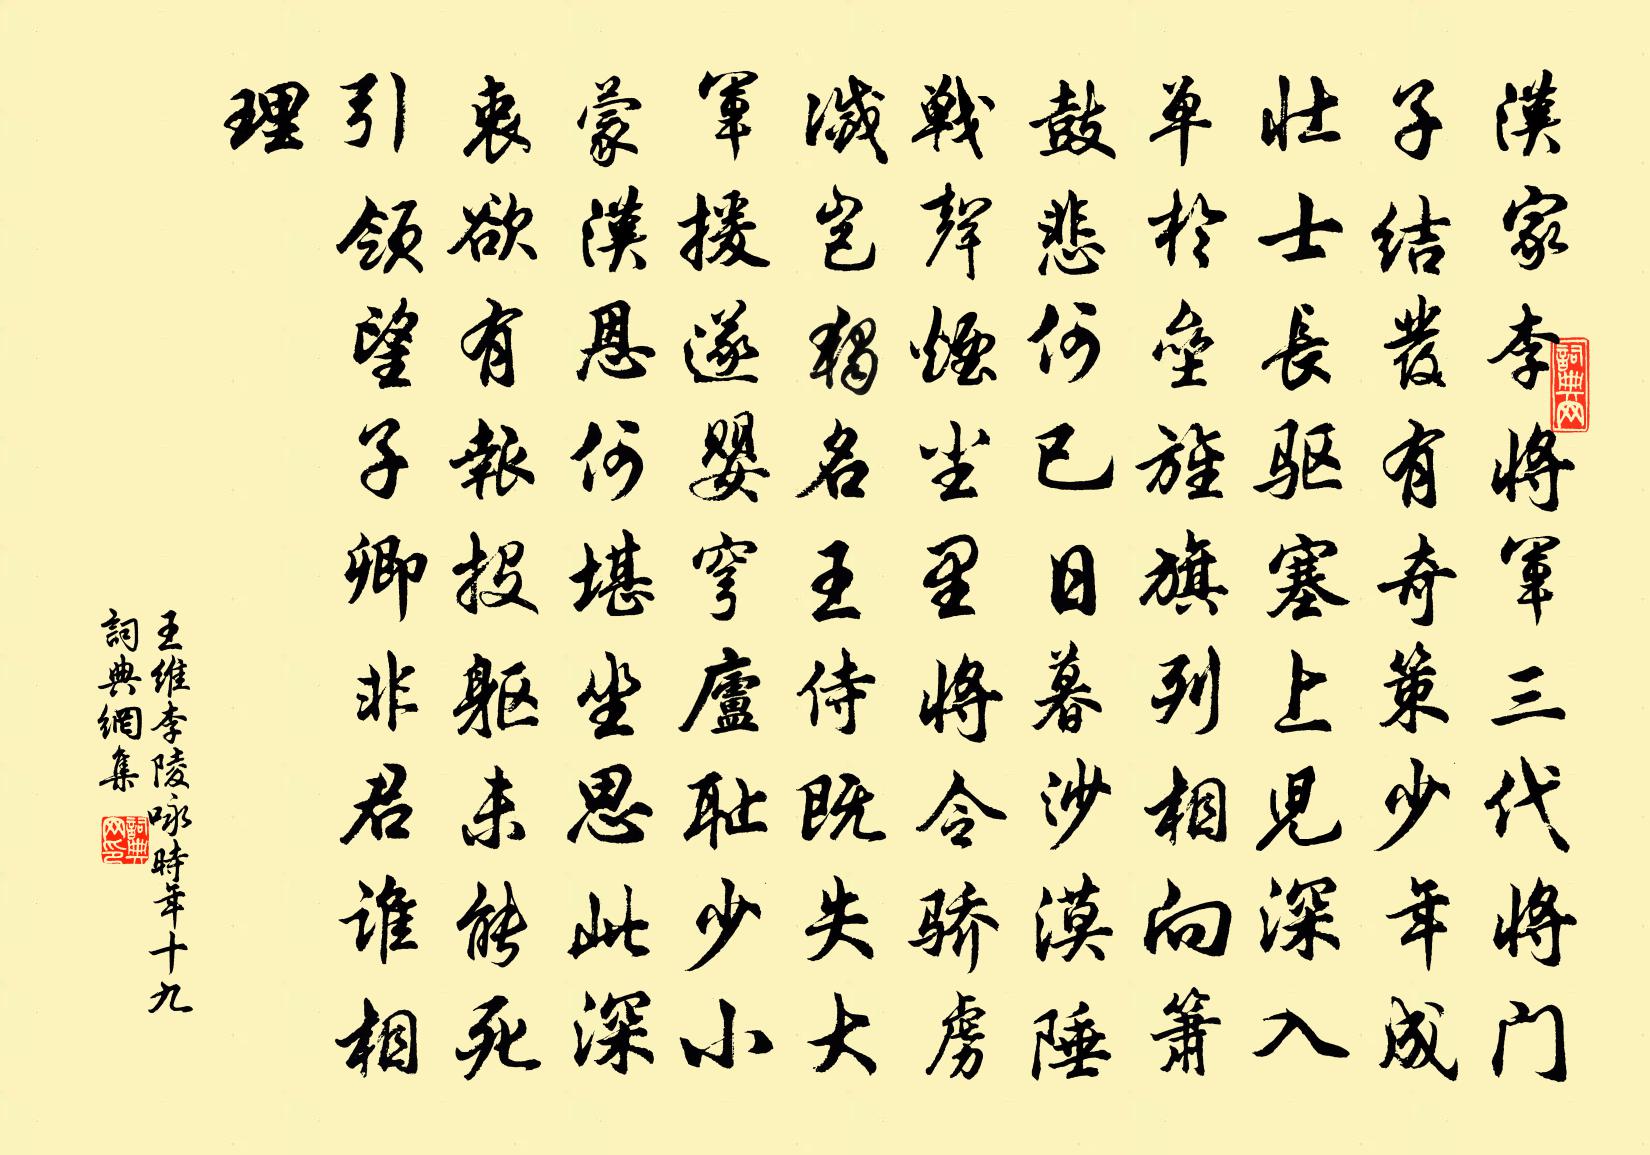 漢家李將軍三代將门
子結發有奇策少年成
壮士長驱塞上児深入
单於壘旌旗列相向簫
鼓悲何已日暮沙漠陲
戰聲煙尘里將令骄虜
滅豈獨名王侍既失大
軍援遂嬰穹廬耻少小
蒙漢恩何堪坐思此深
衷欲有報投躯未能死
引領望子卿非君谁相
理
王維李陵咏時年十九
詞典網集
詞典网
詞典网印